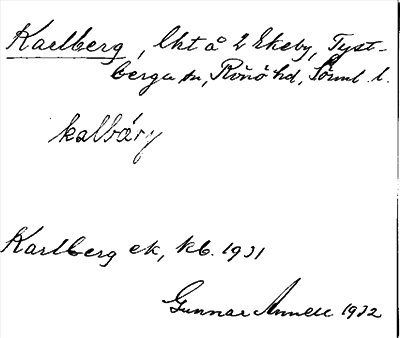 Karlberg, lht å L Ekeby, Tyst-
berga sn, Rönö hd, Sörml. l.
kalbárj
Karlberg ek, kb. 1931
Gunnar Annell 1932